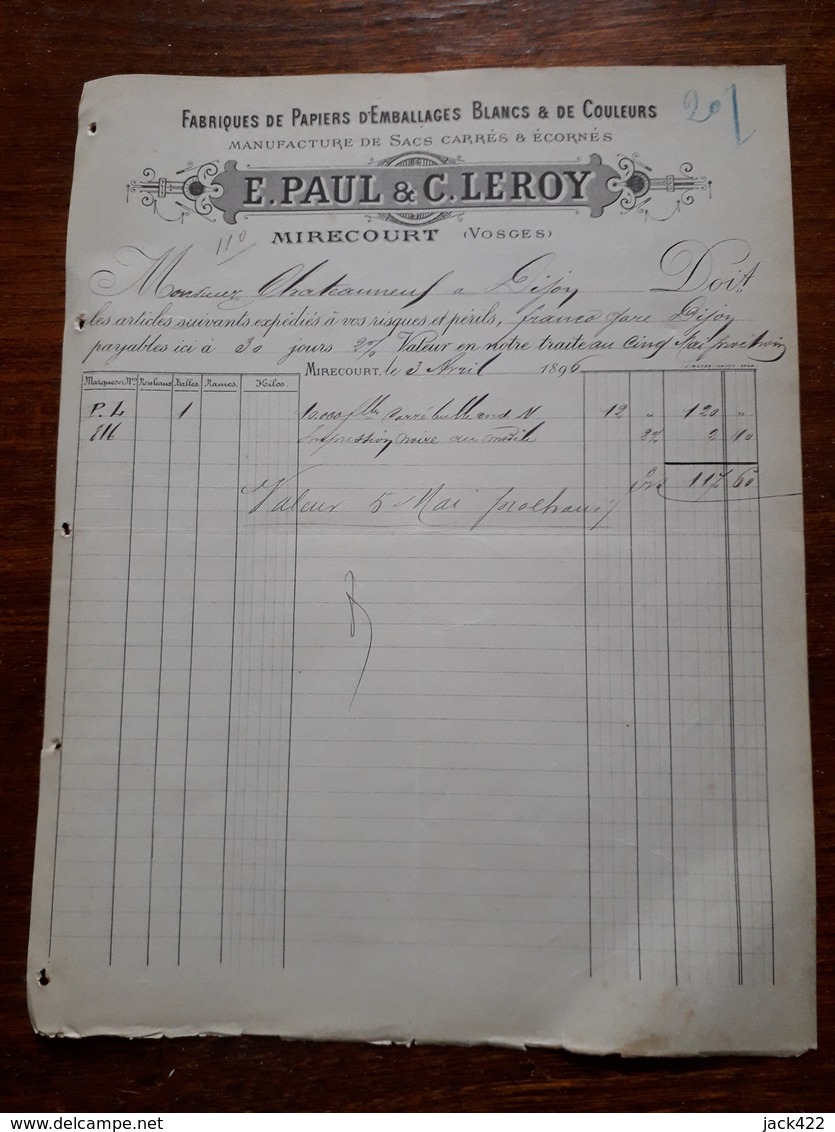 201
FABRIQUES DE PAPIERS D'EMBALLAGES BLANCS & DE COULEURS
MANUFACTURE DE SACS CARRÉS & ÉCORNÉS
E. PAUL & C. LEROY
110
MIRECOURT (VOSGES)
Monsieur Chateauneuf a Dijon Doit
les articles suivants expédiés à vos risques et périls, franco gare Dijon
payables ici à 30 jours 2% Valeur en notre traite au cinq Mai prochain
MIRECOURT, le 3 Avril 1896
Marques et Nos Rouleaux Balles Rames Kilos
P. L 1 10.000 carré bulle cond N 12 " 120 "
816 Impression noire au modèle 2% 2 40
117 60
Valeur 5 Mai prochain
jack422